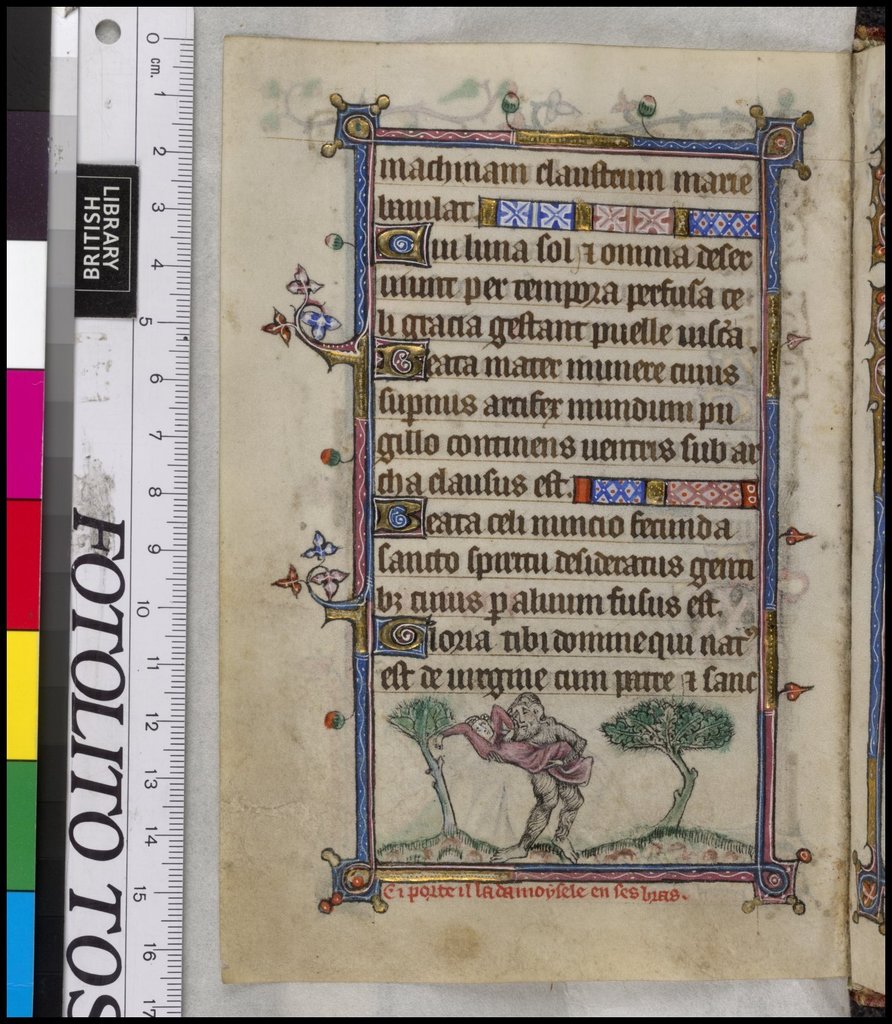 machinam claustrum marie
baiulat.
Cui luna sol ⁊ omnia deser
uiunt per tempora perfusa ce
li gracia gestant puelle uisc̄a.
Beata mater munere cuius
sup̄nus artifex mundum pu
gillo continens uentris sub ar
cha clausus est.
Beata celi nuncio fecunda
sancto spiritu desideratus genti
bꝫ cuius ꝑ aluum fusus est.
Gloria tibi domine qui natꝰ
est de uirgine cum patre ⁊ sanc
Ci porte il la damoysele en ses bras.
BRITISH
LIBRARY
FOTOLITO TOS
0 cm. 1 2 3 4 5 6 7 8 9 10 11 12 13 14 15 16 17